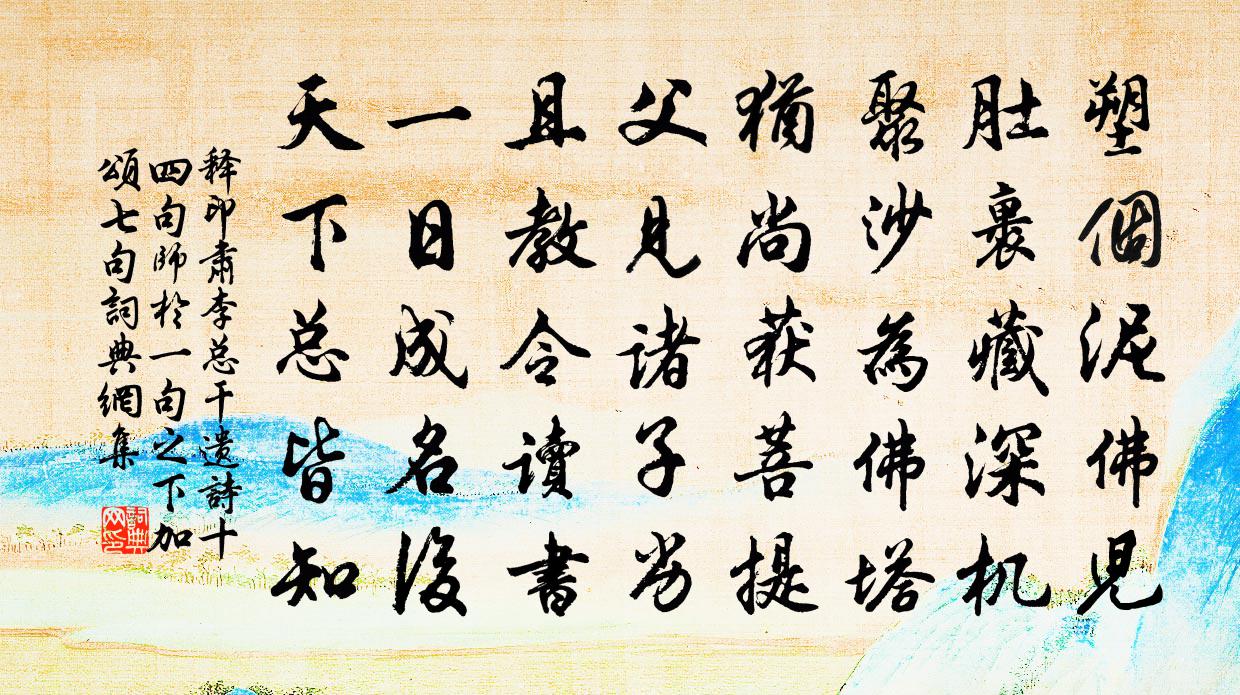 塑個泥佛児
肚裏藏深机
聚沙為佛塔
猶尚获菩提
父見諸子劣
且教令讀書
一日成名後
天下总皆知
释印肃李总干遗詩十
四句師於一句之下加
頌七句詞典網集
詞典
网印